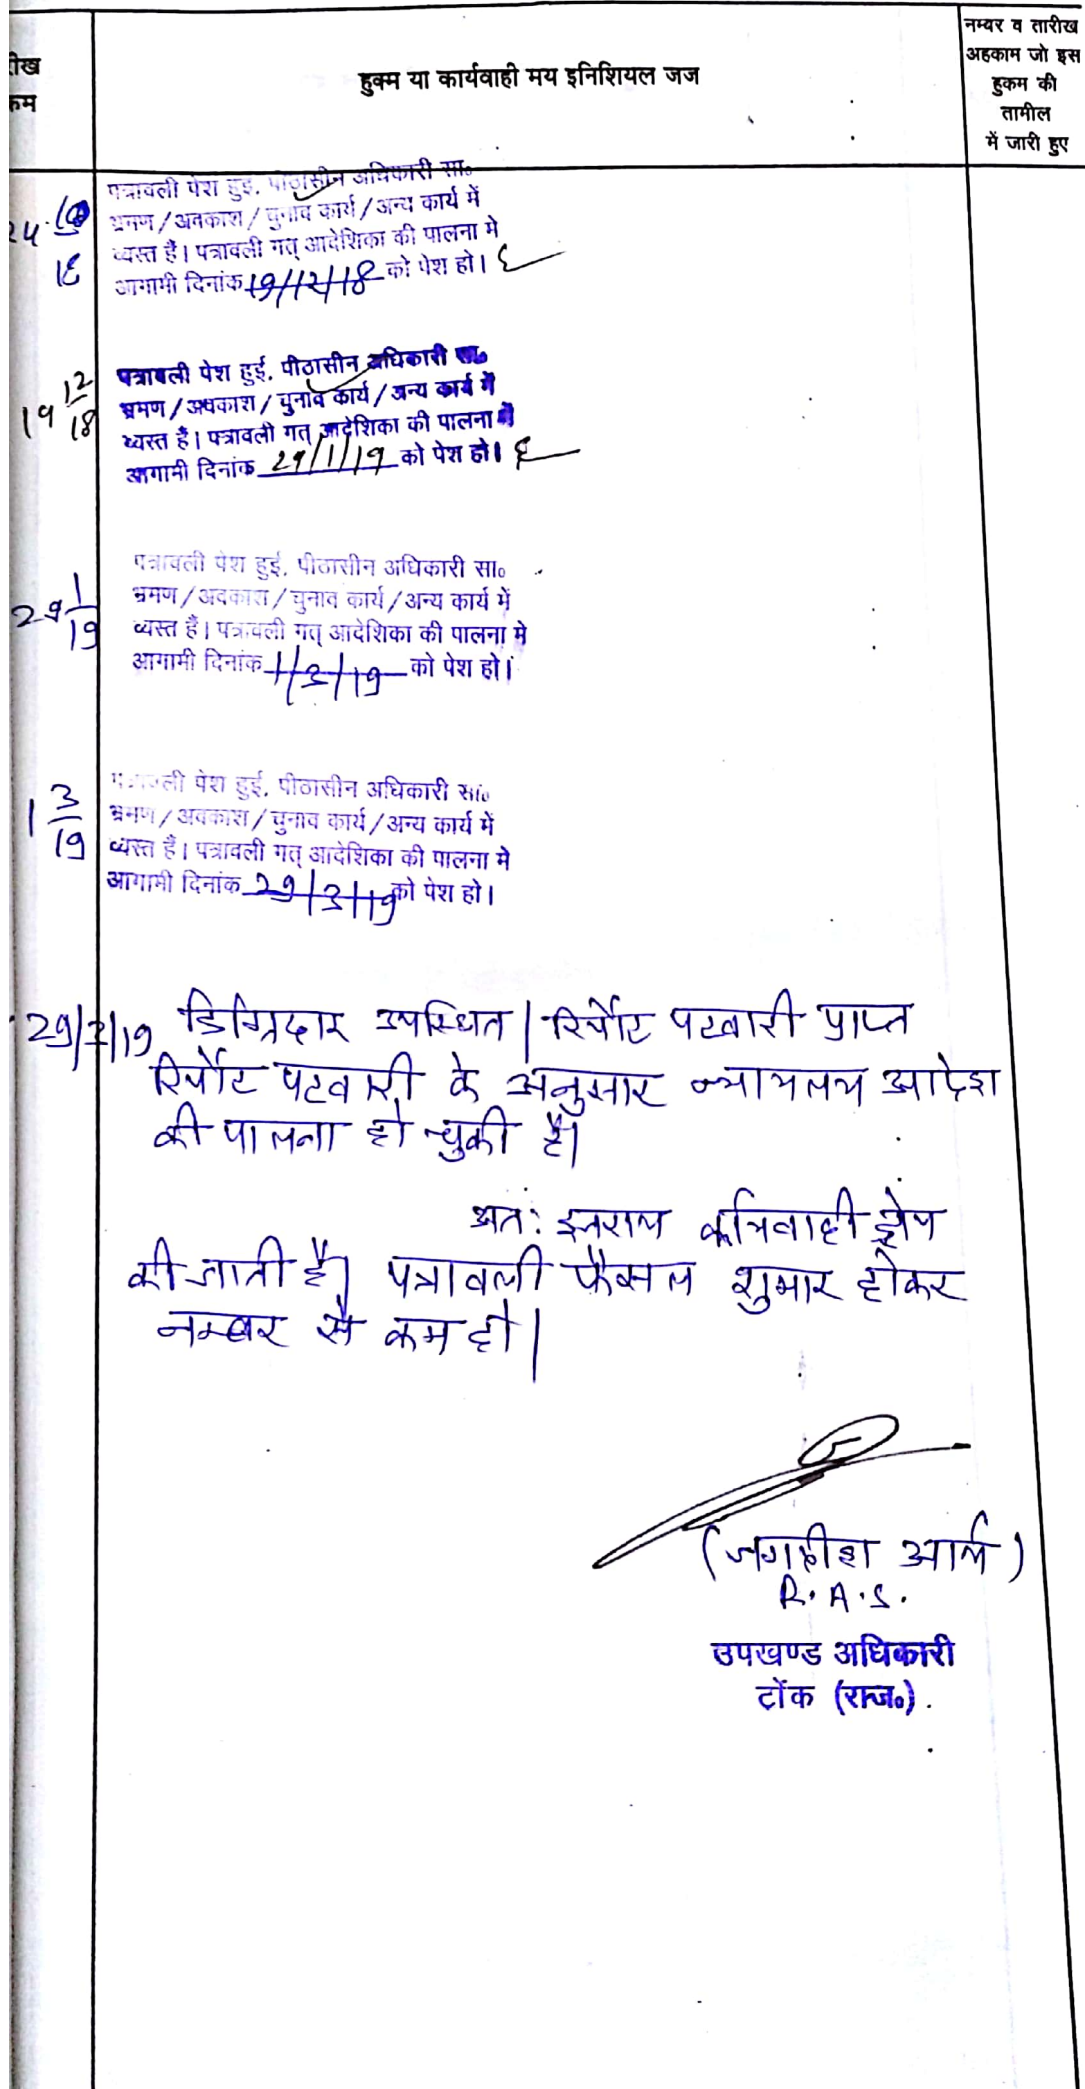 रीख
कम
हुक्म या कार्यवाही मय इनिशियल जज
नम्बर व तारीख
अहकाम जो इस
हुकम की
तामील
में जारी हुए
पत्रावली पेश हुई. पीठासीन अधिकारी सा०
24 10
भ्रमण/अवकाश/चुनाव कार्य/अन्य कार्य में
व्यस्त हैं। पत्रावली गत् आदेशिका की पालना मे
18
आगामी दिनांक 19/12/18 को पेश हो।
पत्रावली पेश हुई. पीठासीन अधिकारी सा०
19 12/18
भ्रमण/अवकाश/चुनाव कार्य/अन्य कार्य में
व्यस्त हैं। पत्रावली गत् आदेशिका की पालना में
आगामी दिनांक 29/1/19 को पेश हो।
पत्रावली पेश हुई. पीठासीन अधिकारी सा०
29 1/19
भ्रमण/अवकाश/चुनाव कार्य/अन्य कार्य में
व्यस्त हैं। पत्रावली गत् आदेशिका की पालना मे
आगामी दिनांक 1/3/19 को पेश हो।
पत्रावली पेश हुई. पीठासीन अधिकारी सा०
1 3/19
भ्रमण/अवकाश/चुनाव कार्य/अन्य कार्य में
व्यस्त हैं। पत्रावली गत् आदेशिका की पालना मे
आगामी दिनांक 29/3/19 को पेश हो।
29/3/19 डिग्रिदार उपस्थित। रिर्पोट पटवारी प्राप्त
रिर्पोट पटवारी के अनुसार न्यायलय आदेश
की पालना हो चुकी है।
अत: इजराय कार्यवाही ड्रोप
की जाती है। पत्रावली फैसल शुमार होकर
नम्बर से कम हो।
(जगदीश आर्य)
R.A.S.
उपखण्ड अधिकारी
टोंक (राज०).